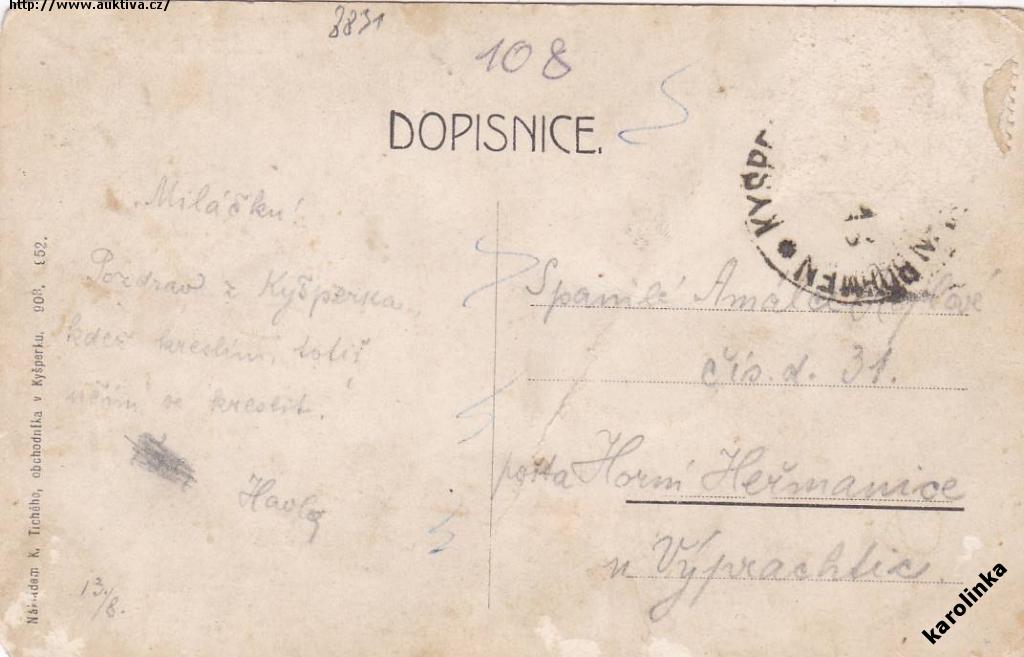 http://www.auktiva.cz/
8831
108
DOPISNICE.
Miláčku!
Pozdrav z Kyšperka,
kdež kreslím, totiž
učím se kreslit.
13/8.
Nákladem K. Tichého, obchodníka v Kyšperku. 908. 852.
KYŠPE
Spanilé
čís. d. 31.
pošta Horní Heřmanice
u Výprachtic.
karolinka